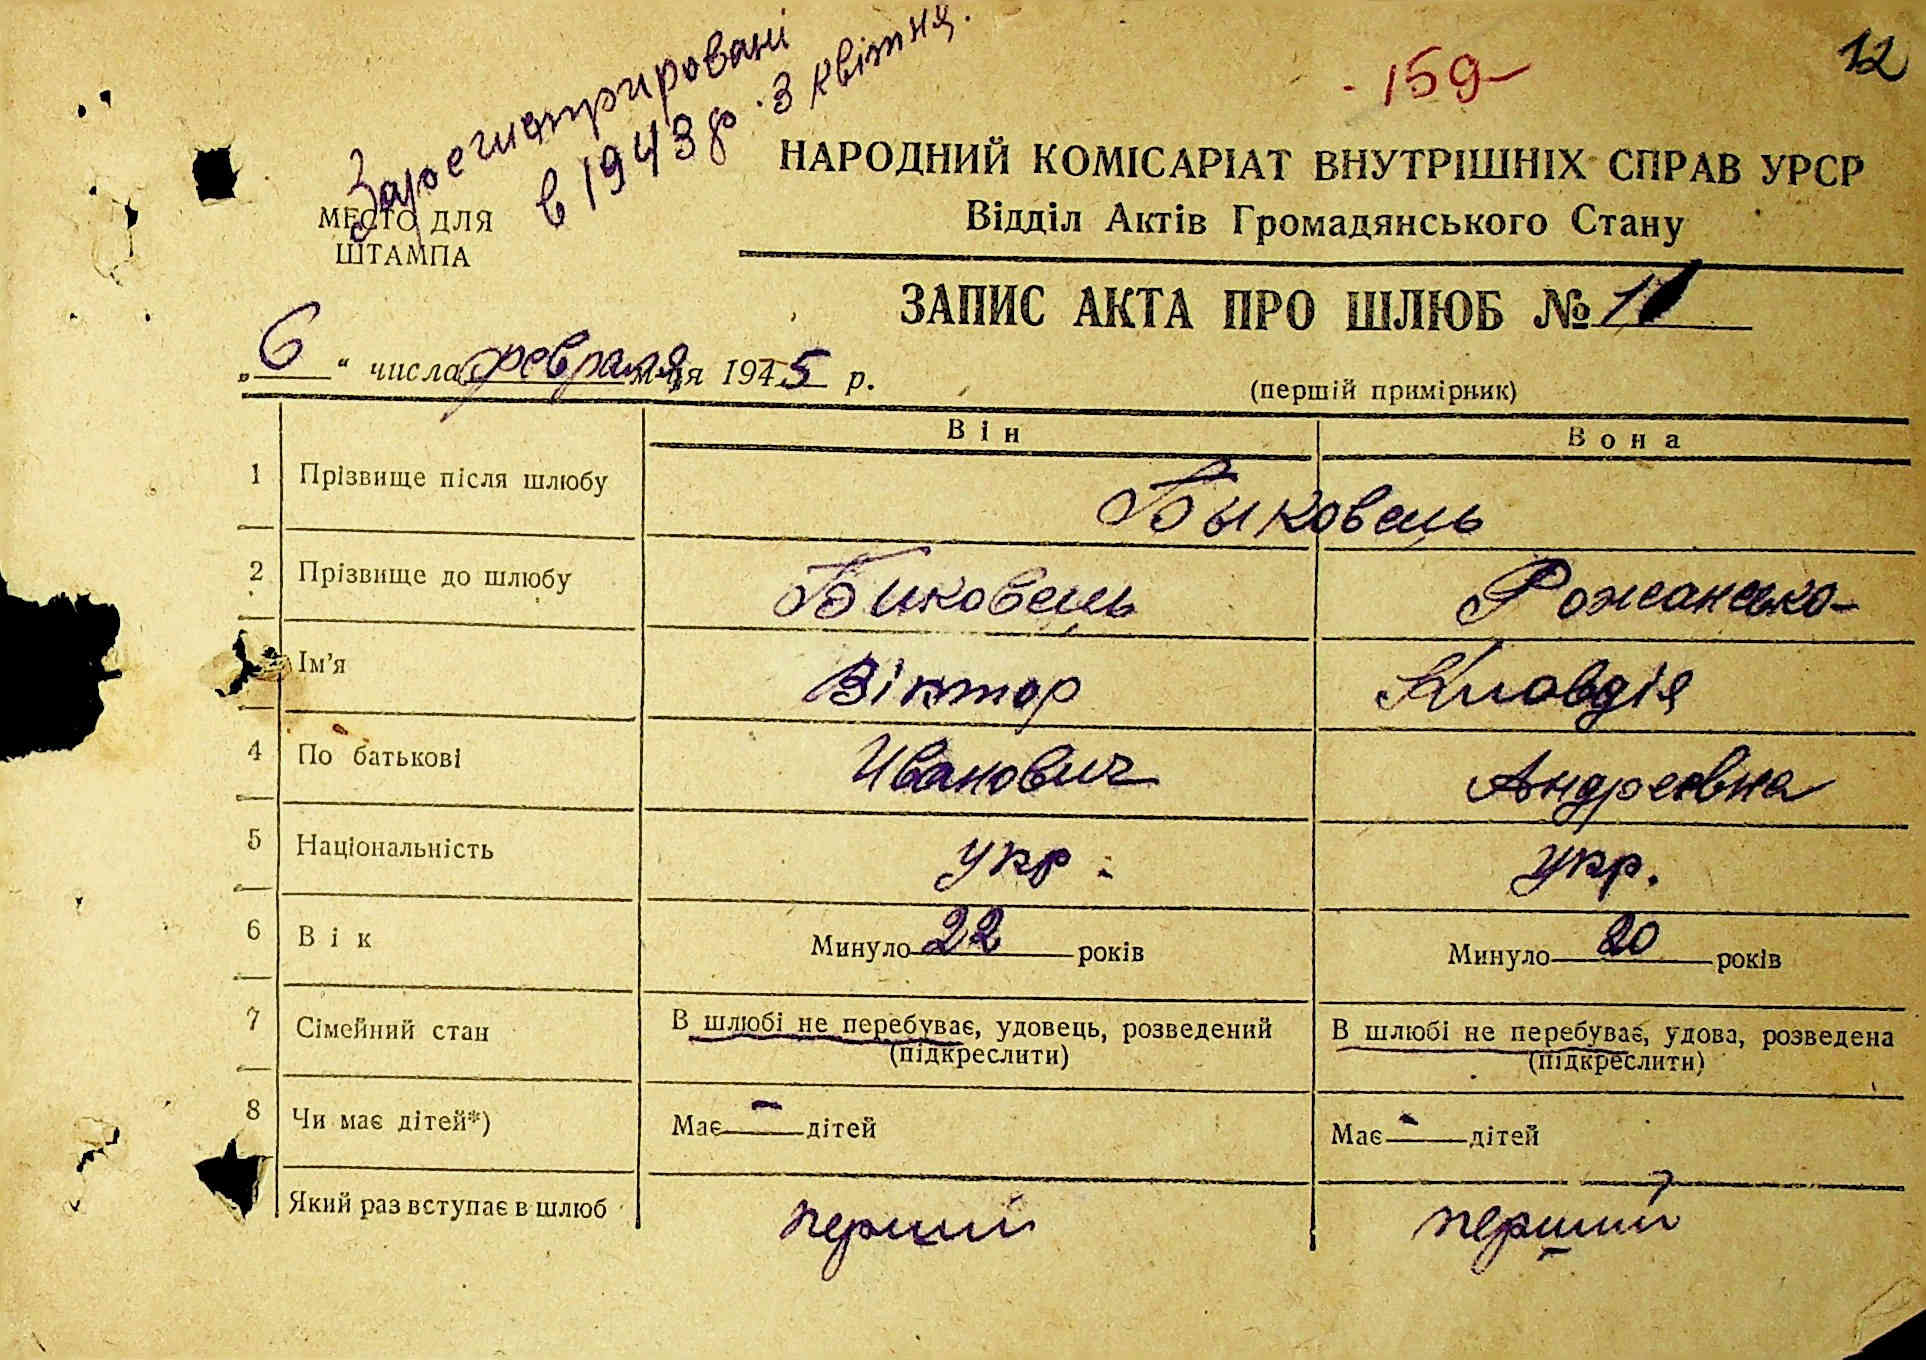 Зарегистрировані
в 1943 р. 3 квітня.
-159-
12
НАРОДНИЙ КОМІСАРІАТ ВНУТРІШНІХ СПРАВ УРСР
Відділ Актів Громадянського Стану
МЕСТО ДЛЯ
ШТАМПА
ЗАПИС АКТА ПРО ШЛЮБ №
„6“ числа февраля м-ця 1945 р.
(першій примірник)
Він Вона
1 Прізвище після шлюбу Быковець
2 Прізвище до шлюбу Биковець Рожансько-
Ім'я Віктор Кловдія
4 По батькові Иванович Андреевна
5 Національність укр. укр.
6 Вік Минуло 22 років Минуло 20 років
7 Сімейний стан В шлюбі не перебуває, удовець, розведений В шлюбі не перебуває, удова, розведена
(підкреслити) (підкреслити)
8 Чи має дітей*) Має - дітей Має - дітей
Який раз вступає в шлюб перший перший